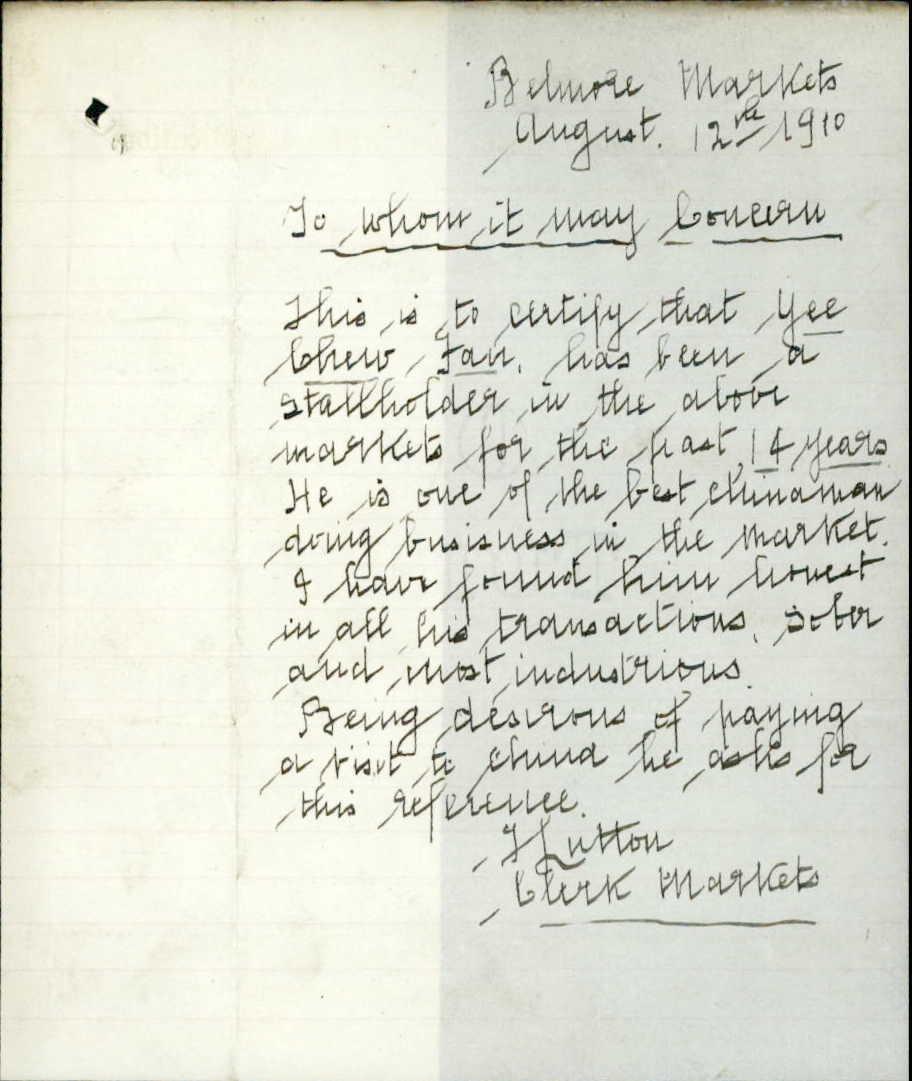 Belmore Markets
August. 12th 1910
To whom it may Concern
This is to certify that Yee
Chew Fan, has been a
stallholder in the above
markets for the past 14 years
He is one of the best chinaman
doing busisness in the market.
I have found him honest
in all his transactions, sober
and most industrious.
Being desirous of paying
a visit to china he asks for
this reference.
Clerk Markets